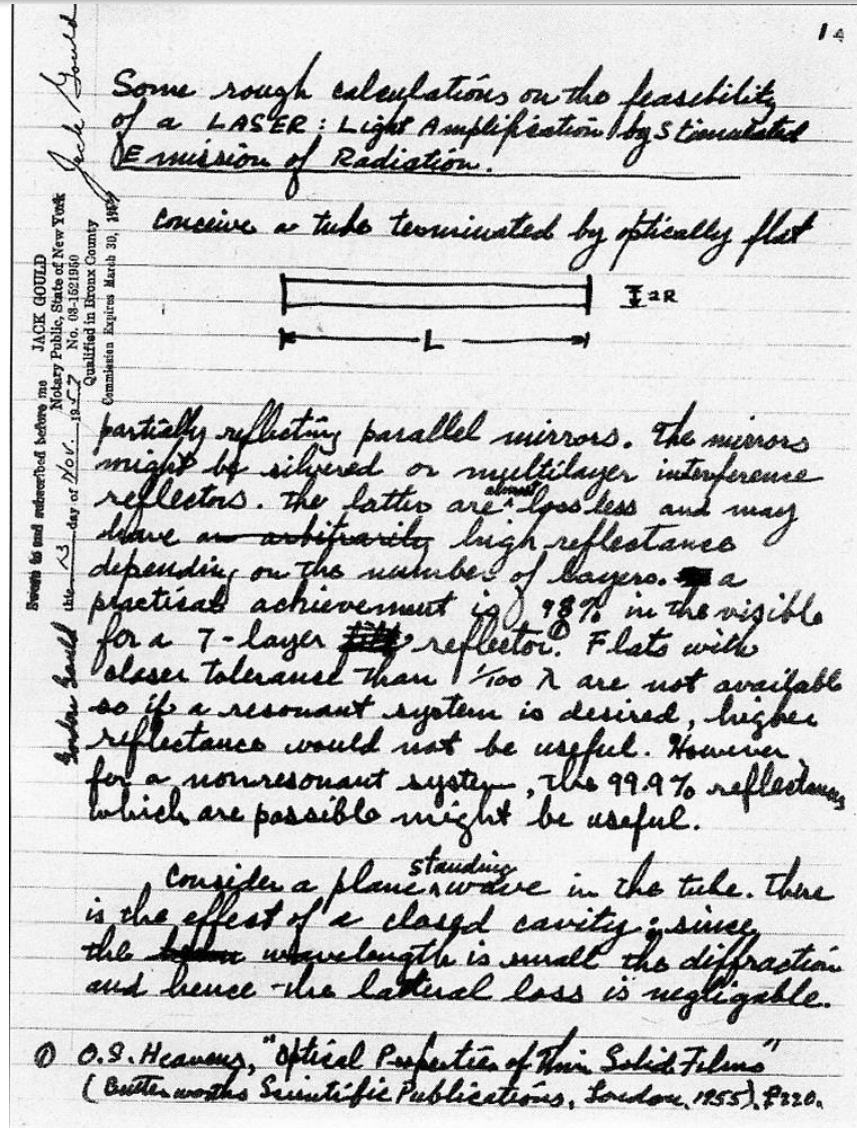 1a
Some rough calculations on the feasibility
of a LASER: Light Amplification by Stimulated
Emission of Radiation.
conceive a tube terminated by optically flat
2R
L
partially reflecting parallel mirrors. The mirrors
might be silvered or multilayer interference
reflectors. The latter are almost lossless and may
have an arbitrarily high reflectance
depending on the number of layers. a
practical achievement is 98% in the visible
for a 7-layer reflector.① Flats with
closer tolerance than 1/100 λ are not available
so if a resonant system is desired, higher
reflectance would not be useful. However
for a nonresonant system, the 99.9% reflectances
which are possible might be useful.
Consider a plane standing wave in the tube. There
is the effect of a closed cavity; since
the wavelength is small the diffraction
and hence the lateral loss is negligable.
① O.S. Heavens, "Optical Properties of Thin Solid Films"
(Butterworths Scientific Publications, London, 1955), P220.
Jack Gould
Sworn to and subscribed before me
this 13 day of Nov. 1957
JACK GOULD
Notary Public, State of New York
No. 03-1521950
Qualified in Bronx County
Commission Expires March 30, 1959
Gordon Gould